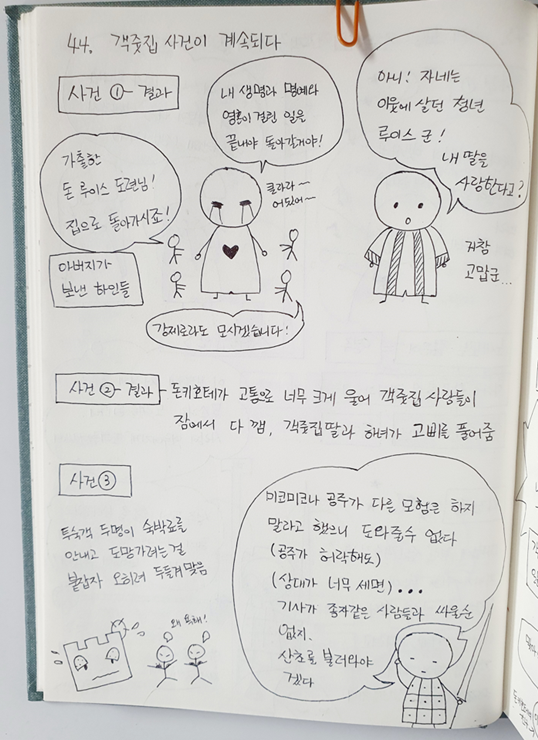 44. 객줏집 사건이 계속되다
사건 ①-결과
내 생명과 명예와
영혼이 걸린 일을
끝내야 돌아갈거야!
아니! 자네는
이웃에 살던 청년
루이스 군!
내 딸을
사랑한다고?
가출한
돈 루이스 도련님!
집으로 돌아가시죠!
클라라~
어딨어~
아버지가
보낸 하인들
강제로라도 모시겠습니다!
거참
고맙군...
사건 ②-결과 - 돈키호테가 고통으로 너무 크게 울어 객줏집 사람들이
잠에서 다 깸, 객줏집딸과 하녀가 고삐를 풀어줌
사건 ③
투숙객 두명이 숙박료를
안내고 도망가려는걸
붙잡자 오히려 두들겨 맞음
왜 못해!
미코미코나 공주가 다른 모험은 하지
말라고 했으니 도와줄수 없다
(공주가 허락해도)
(상대가 너무 세면)...
기사가 종자같은 사람들과 싸울순
없지.
산초를 불러와야
겠다